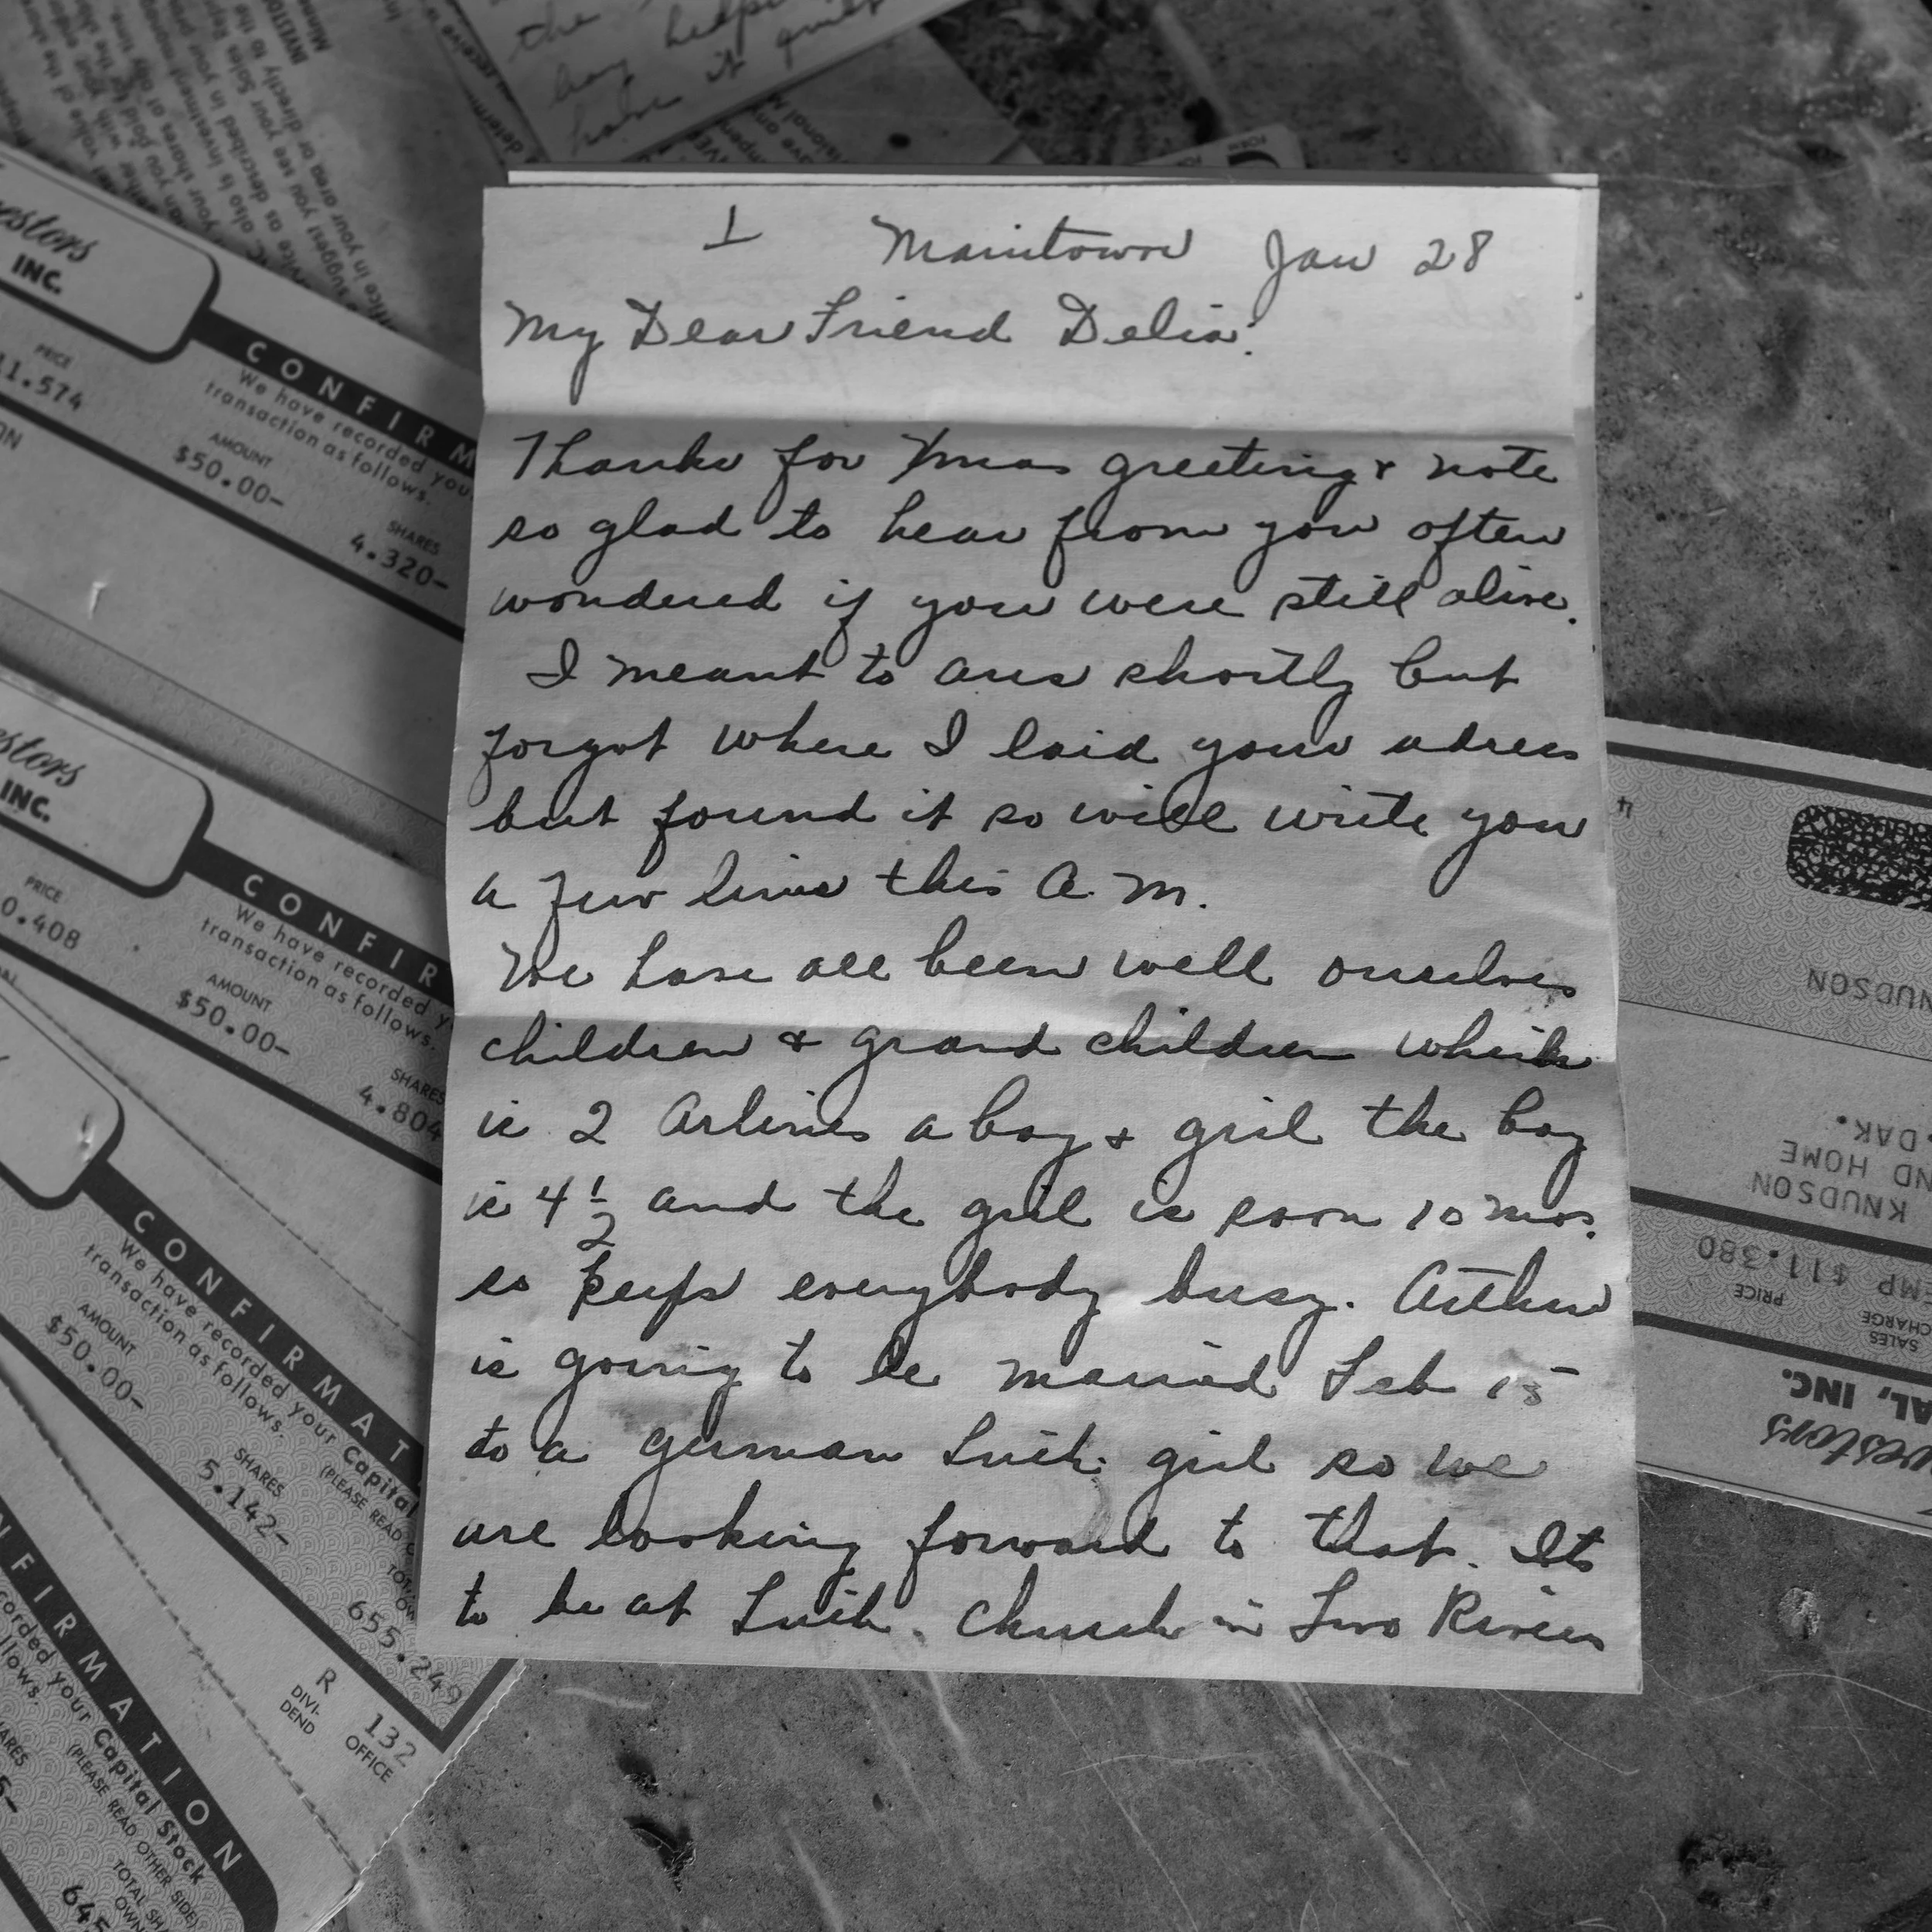 the
boy helping
have it quiet
1 Manitowoc Jan 28
My Dear Friend Delia:
Thanks for Xmas greeting & note
so glad to hear from you often
wondered if you were still alive.
I meant to ans shortly but
forgot where I laid your adress
but found it so will write you
a few lines this A.M.
We have all been well ourselves
children & grand children which
is 2 Arlines a boy & girl the boy
is 4 1/2 and the girl is soon 10 mos.
so keeps everybody busy. Arthur
is going to be married Feb 15
to a german Luth. girl so we
are looking forward to that. Its
to be at Luth. Church in Two Rivers
estors
INC.
CONFIRM
We have recorded you
transaction as follows.
PRICE
11.574
AMOUNT
$50.00-
SHARES
4.320-
estors
INC.
CONFIR
We have recorded y
transaction as follows.
PRICE
0.408
AMOUNT
$50.00-
SHARES
4.804
CONFIRMAT
We have recorded your Capital
transaction as follows. (PLEASE READ
AMOUNT
$50.00-
SHARES
5.142-
655.249
R
DIVI-
DEND
132
OFFICE
NFIRMATION
corded your Capital Stock
llows. (PLEASE READ OTHER SIDE)
TOTAL SHA
OWN
645
NUDSON
DAK.
ND HOME
KNUDSON
MP $11.380
PRICE
SALES
CHARGE
AL, INC.
vestors